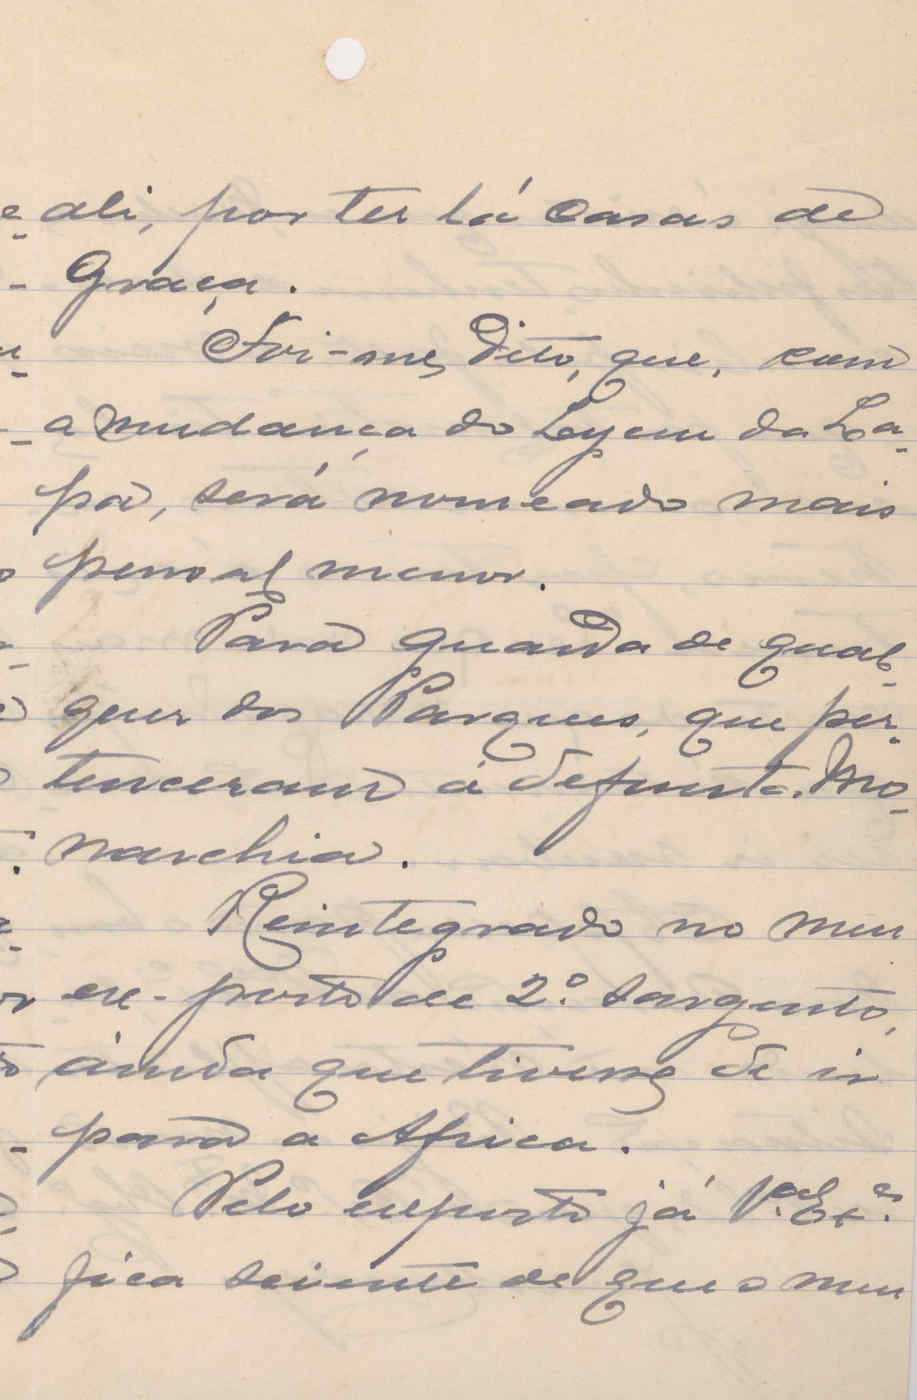 ali, por ter lá casas de
Graça.
Foi-me, dito, que, com
a mudança do Lyceu da La-
pa, será nomeado mais
pessoal menor.
Para guarda de qual-
quer dos Parques, que per-
tenceram á defunta Mo-
narchia.
Reintegrado no meu
ex-posto de 2.º Sargento,
ainda que tivesse de ir
para a Africa.
Pelo exposto já V.ª Ex.ª
fica sciente de que o meu